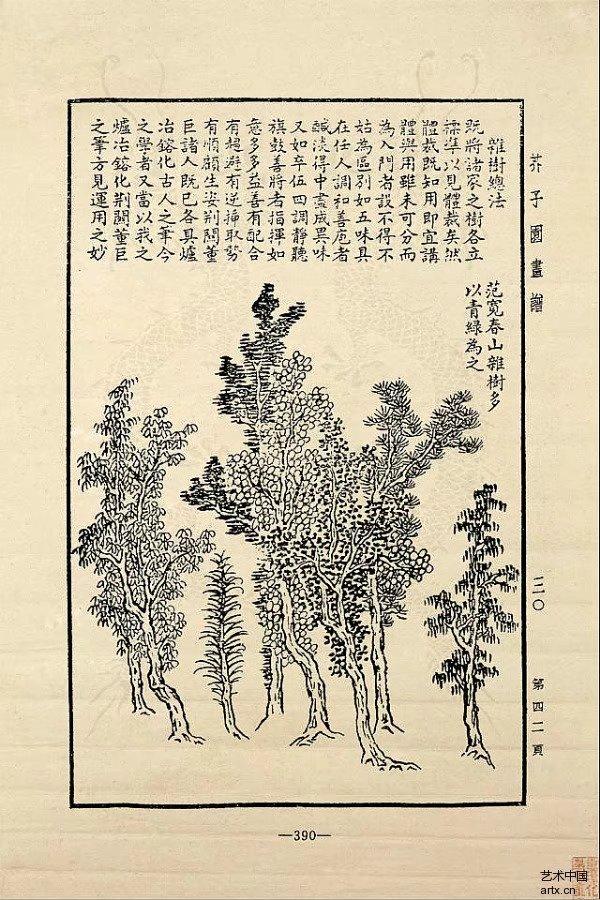 芥子園畫譜
雜樹總法
既將諸家之樹各立
標準以見體裁矣然
體裁既知用即宜講
體與用雖未可分而
為入門者設不得不
姑為區別如五味具
在任人調和善庖者
鹹淡得中盡成異味
又如卒伍四調靜聽
旗鼓善將者指揮如
意多多益善有配合
有趨避有逆插取勢
有順顧生姿荊關董
巨諸人既已各具爐
冶鎔化古人之筆今
之學者又當以我之
爐冶鎔化荊關董巨
之筆方見運用之妙
范寬春山雜樹多
以青綠為之
第四二頁
—390—
艺术中国
artx.cn